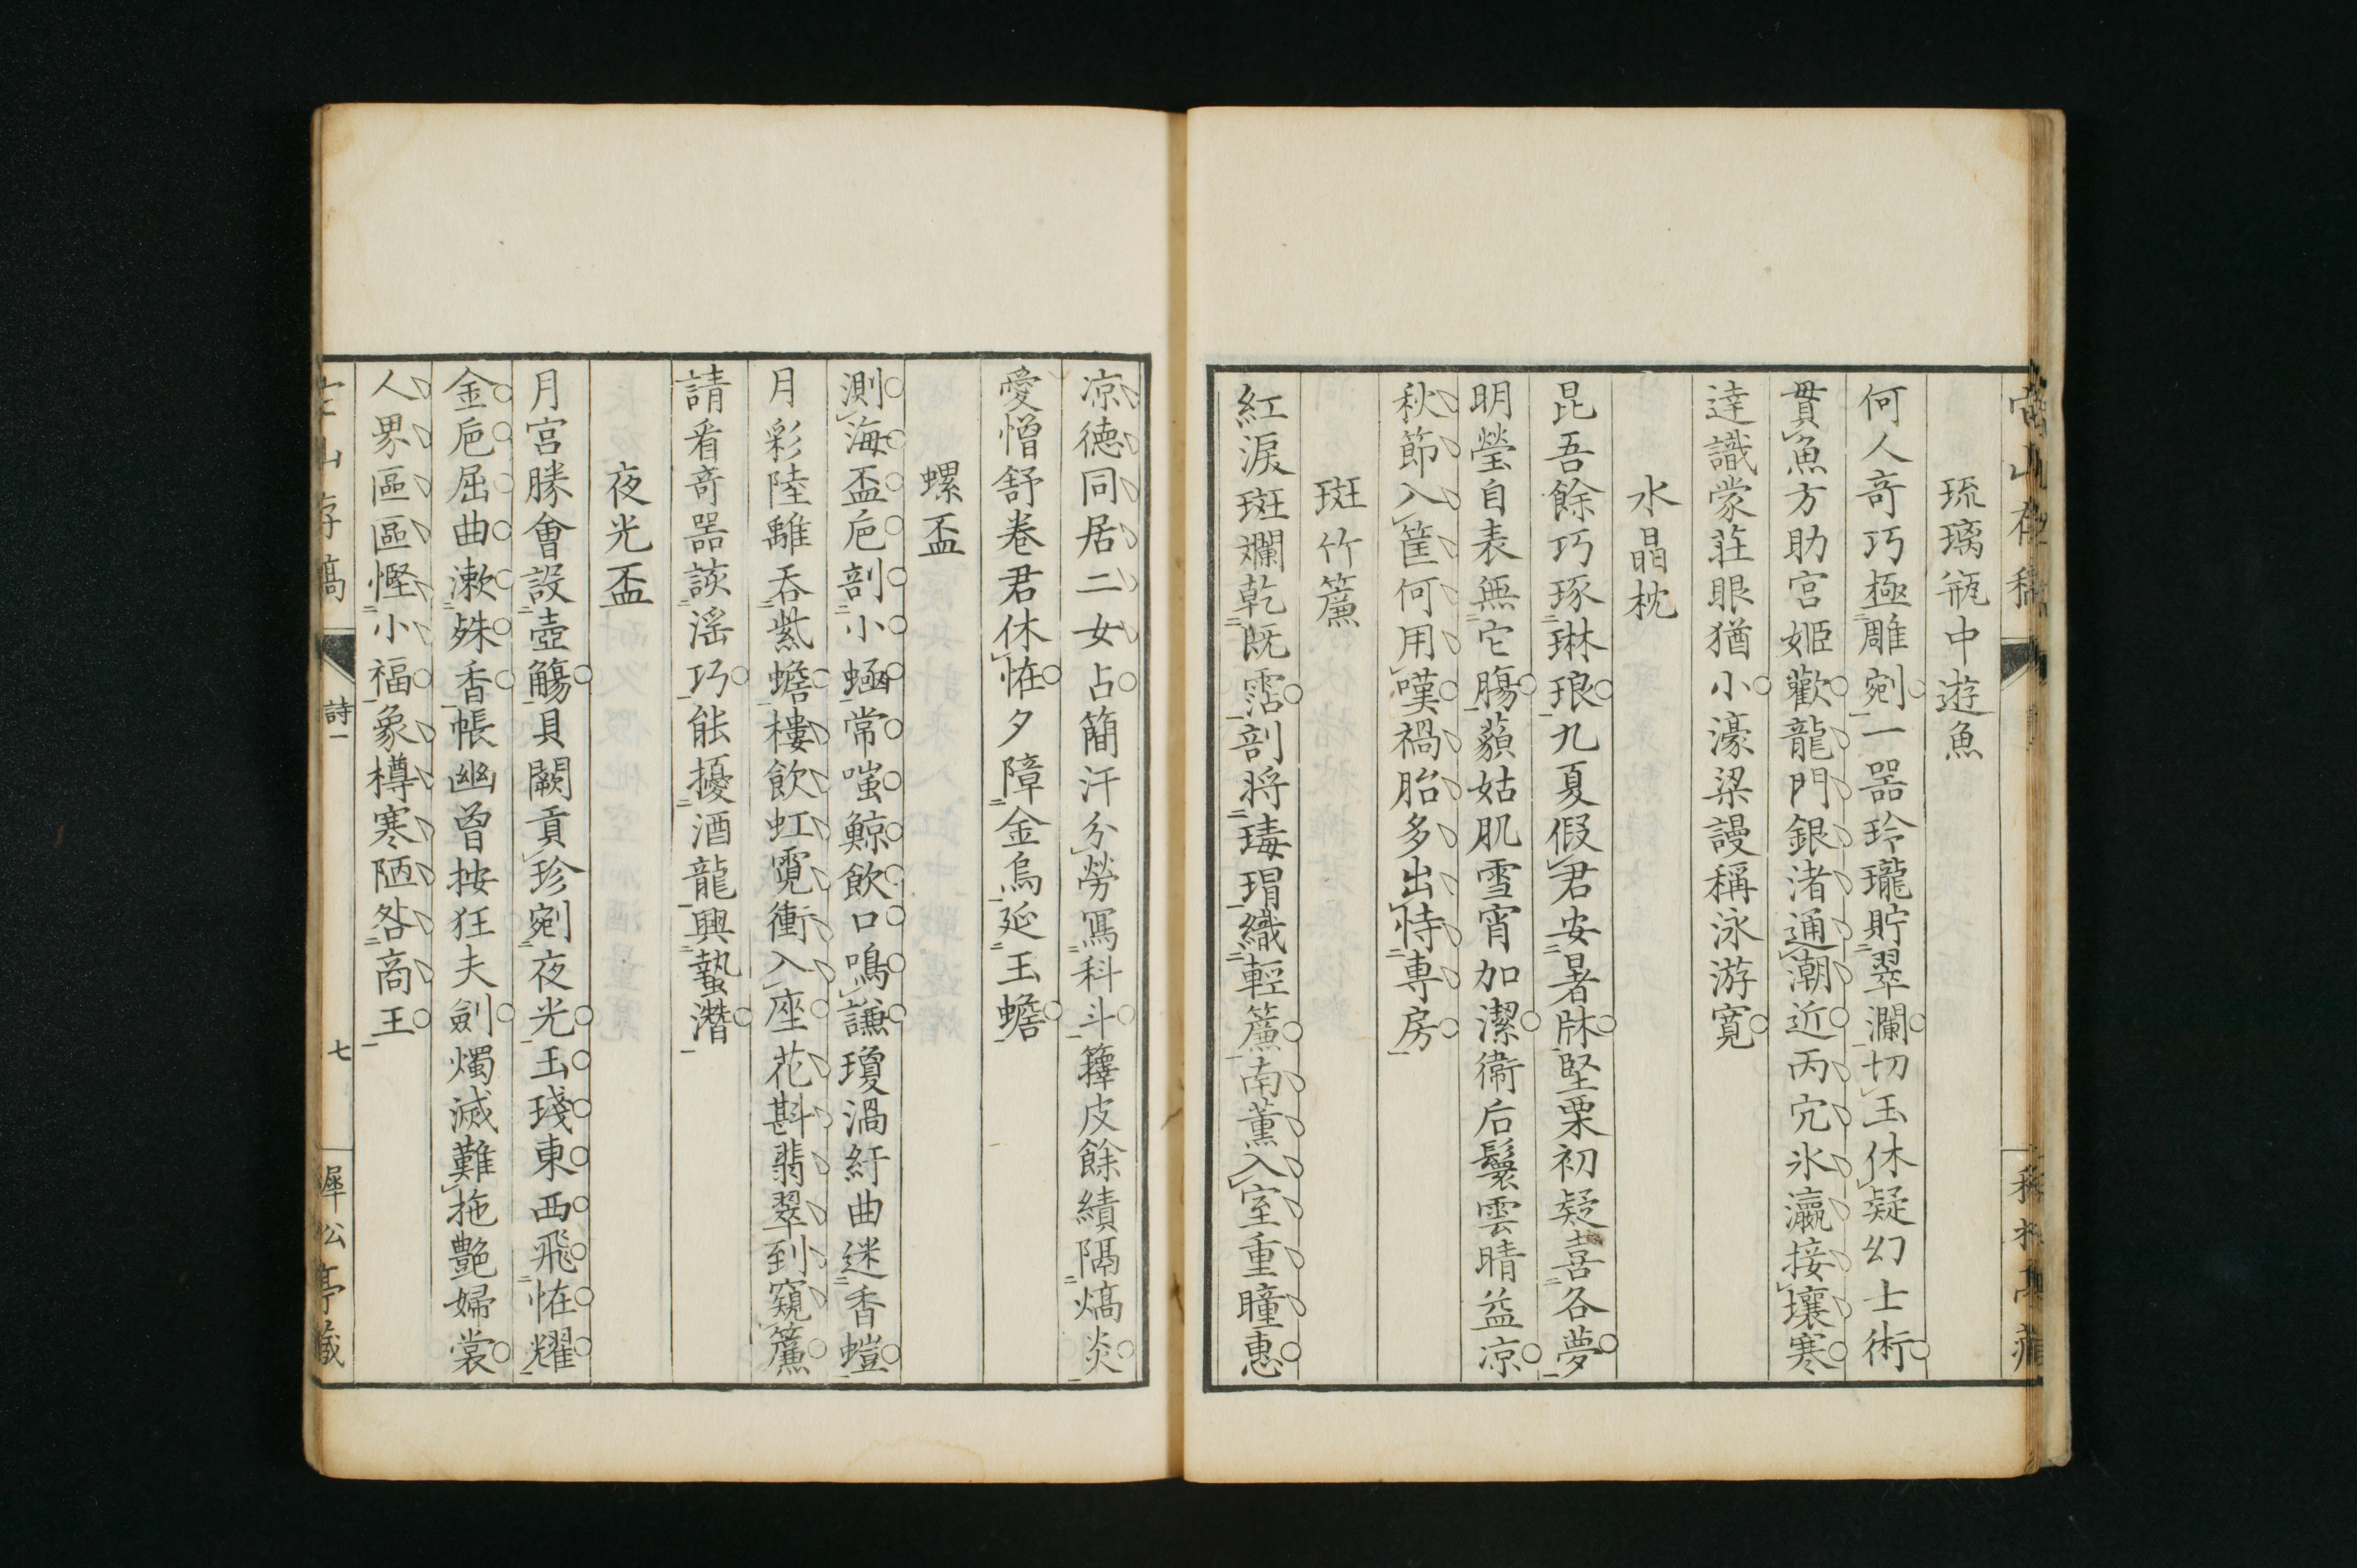 琉璃瓶中遊魚
何人奇巧極雕剜一器玲瓏貯翠瀾切玉休疑幻士術
貫魚方助宮姬歡龍門銀渚通潮近丙穴氷瀛接壤寒
達識蒙莊眼猶小濠梁謾稱泳游寬
水晶枕
昆吾餘巧琢琳琅九夏假君安暑牀堅栗初疑喜各夢
明瑩自表無它腸藐姑肌雪宵加潔衞后鬟雲晴益凉
秋節入篋何用嘆禍胎多出恃專房
斑竹簾
紅淚斑斕乾既霑剖將瑇瑁織輕簾南薰入室重瞳惠
凉德同居二女占簡汗分勞寫科斗籜皮餘績隔熇炎
愛憎舒巻君休恠夕障金烏延玉蟾
螺盃
測海盃巵剖小蝸常嗤鯨飲口鳴謙瓊渦紆曲迷香螘
月彩陸離吞紫蟾樓飲虹霓衝入座花斟翡翠到窺簾
請看奇器該滛巧能擾酒龍興蟄潛
夜光盃
月宮勝會設壺觴貝闕貢珍剜夜光玉琖東西飛恠耀
金巵屈曲漱殊香帳幽曾按狂夫劍燭滅難拖艶婦裳
人界區區慳小福象樽寒陋咎商王
山存稿
詩一
七
犀公亭藏